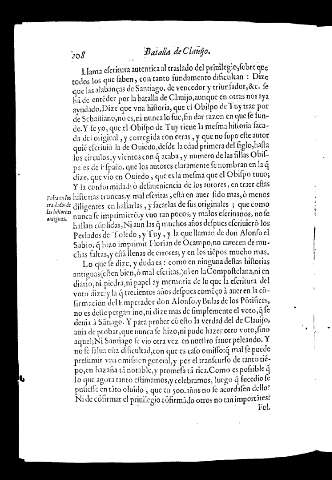 208
Batalla de Clauijo.
Llama escritura autentica al traslado del priuilegio, sobre que
todos los que saben, con tanto fundamento dificultan: Dize
que las alabanças de Santiago, de vencedor y triunfador, &c. se
hā de entēder por la batalla de Clauijo, aunque en otras nos aya
ayudado. Dize que vna historia, que el Obispo de Tuy trae por
de Sebastiano, no es, ni nunca lo fue, sin dar razon en que se fun-
de. Y se yo, que el Obispo de Tuy tiene la mesma historia saca-
da del original, y corregida con otras, y que no supo este autor
quiē escriuia la de Ouiedo, desde la edad primera del siglo, hasta
los circulos, y vientos con q̄ acaba, y numero de las sillas Obis-
pales de España, que los autores claramente se nombran en la q̄
dize, que vio en Ouiedo, que es la mesma que el Obispo tuuo;
Y la conformidad o desauenencia de los autores, en traer estas
historias truncas, y mal escritas, està en auer sido mas, ò menos
diligentes en hallarlas, y sacarlas de sus originales; que como
nunca se imprimierō, y son tan pocos, y malos escriuanos, no se
hallan cūplidas. Ni aun las q̄ muchos años despues escriuierō los
Perlados de Toledo, y Tuy, y la que llaman de don Alonso el
Sabio, q̄ hizo imprimir Florian de Ocampo, no carecen de mu-
chas faltas, y estā llenas de errores, y en los tiēpos mucho mas.
Lo que se dize, y duda es: como en ninguna destas historias
antiguas, (bien, ò mal escritas,) ni en la Compostelana, ni en
diario, ni piedra, ni papel ay memoria de lo que la escritura del
voto dize; y la q̄ trecientos años despues começò à auer en la cō-
firmacion del Emperador don Alonso, y Bulas de los Pōtifices,
no es deste pergamino, ni dize mas de simplemente el voto, q̄ se
deuia à Sātiago. Y para prouar cō esto la verdad del de Clauijo,
auia de prouar, que nunca se hizo, ni pudo hazer otro voto, sino
aquel; Ni Santiago se vio otra vez en nuestro fauor peleando. Y
no se salua esta dificultad, con que es caso omisso: q̄ mal se puede
presumir vna omission general, y por el transcurso de tanto tiē-
po, en hazaña tā notable, y promesa tā rica. Como es possible q̄
lo que agora tanto estimamos, y celebramos, luego q̄ sucedio se
pusiesse en tāto oluido, que en 300. años no se acordassen dello?
Ni de cōfirmar el priuilegio cōfirmādo otros no tan importātes?
Fol.